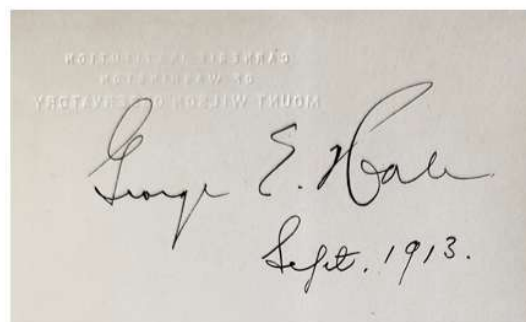 CARNEGIE INSTITUTION
OF WASHINGTON
MOUNT WILSON OBSERVATORY
George E. Hale
Sept. 1913.